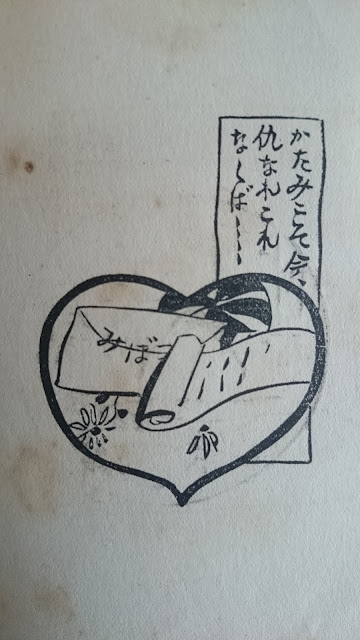 かたみこそ今、
仇なれこれ
なくば———
みぼ